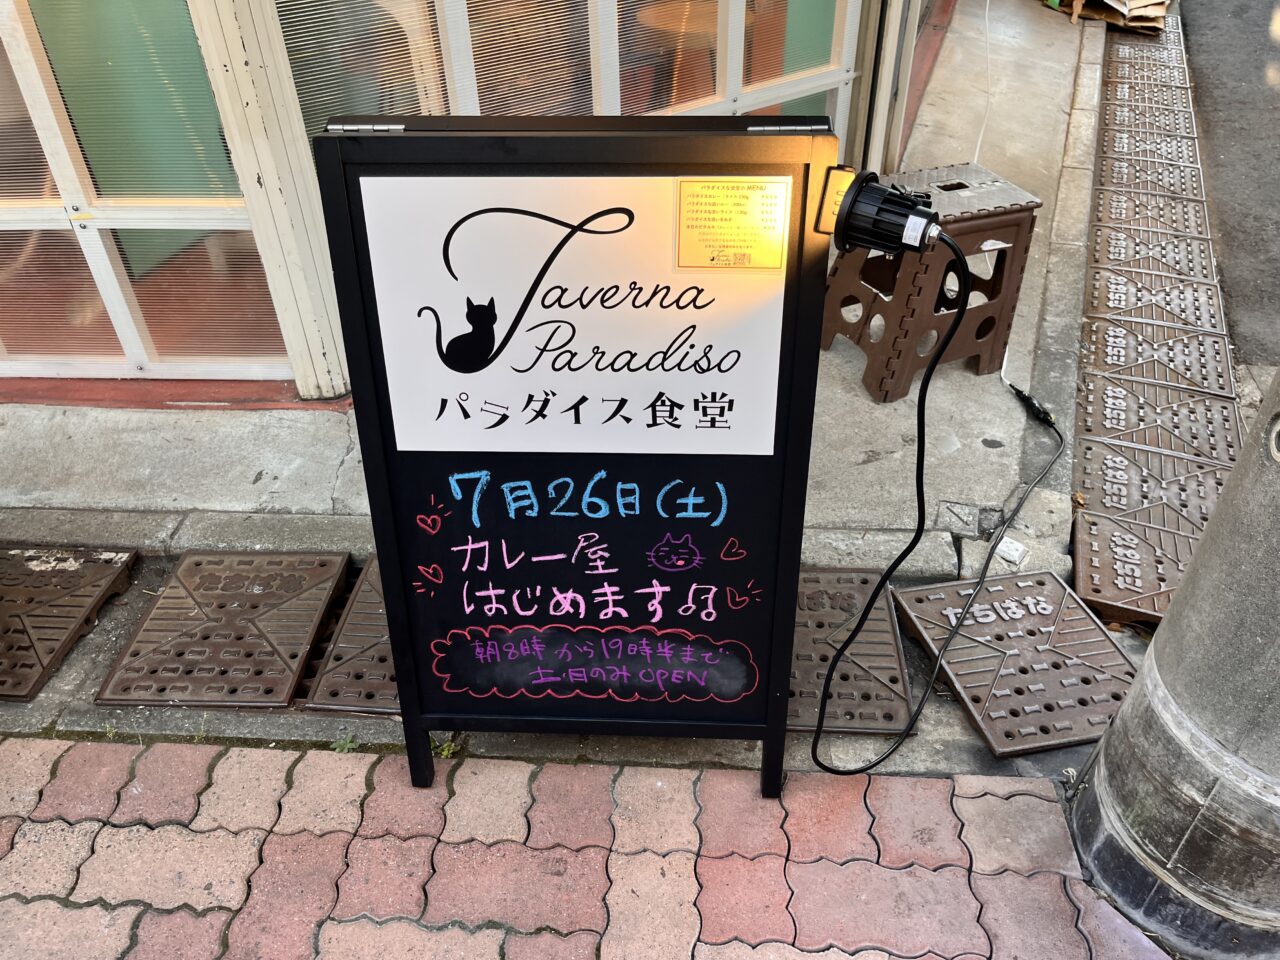 Taverna
Paradiso
パラダイス食堂
パラダイスな食堂の MENU
7月26日(土)
カレー屋
はじめます
朝8時から19時半まで
土・日のみOPEN
たちばな
たちばな
たちばな
たちばな
たちばな